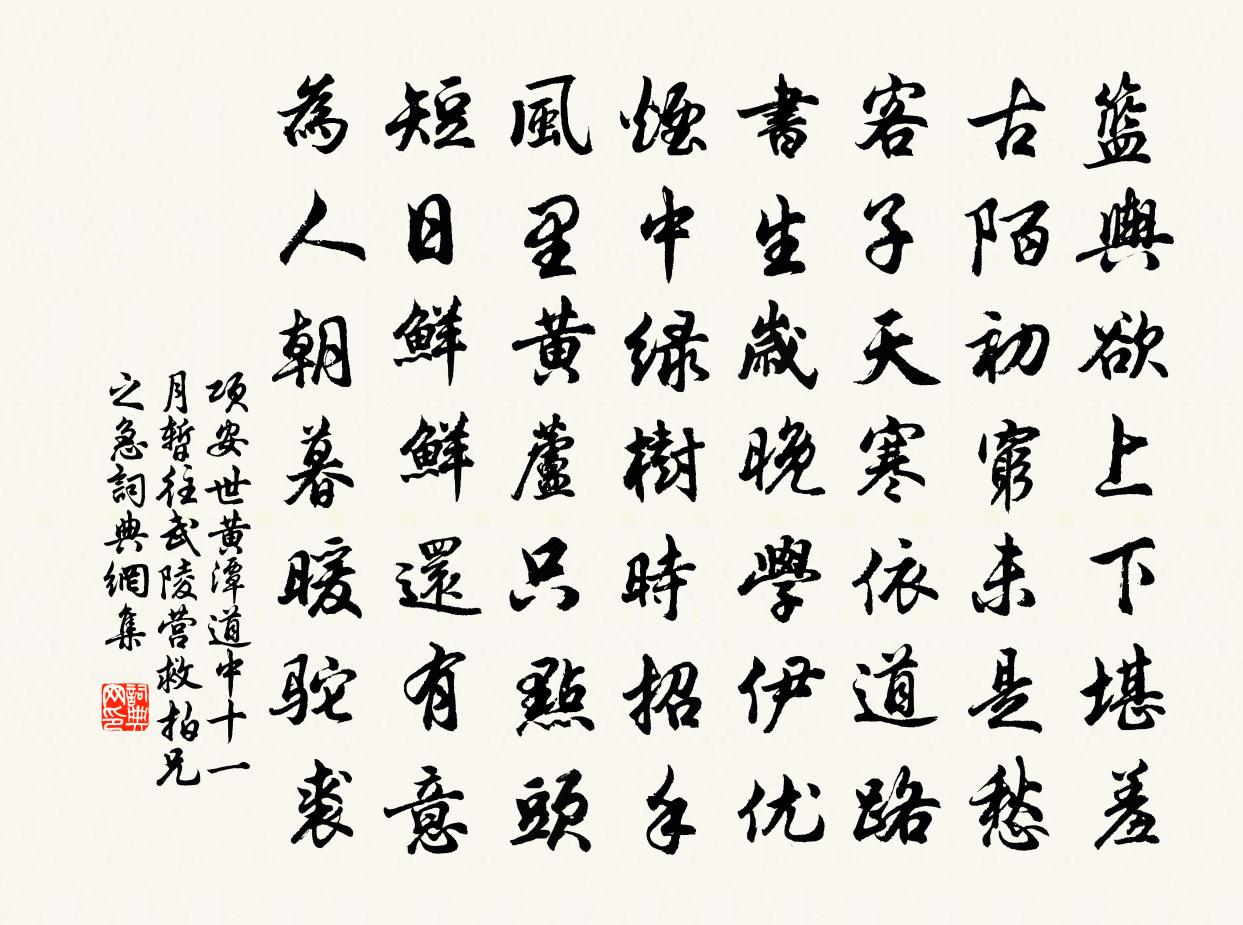 籃輿欲上下堪羞
古陌初窮未是愁
客子天寒依道路
書生歲晚學伊优
煙中緑樹時招手
風里黃蘆只點頭
短日鮮鮮還有意
為人朝暮暖駝裘
項安世黃潭道中十一
月暫往武陵营救柏兄
之急詞典網集
詞典網印